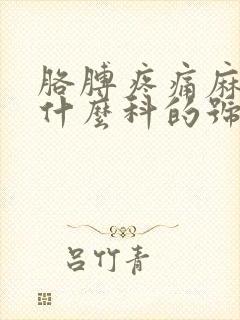 胳膊疼痛麻
什麼科的號
吕竹青